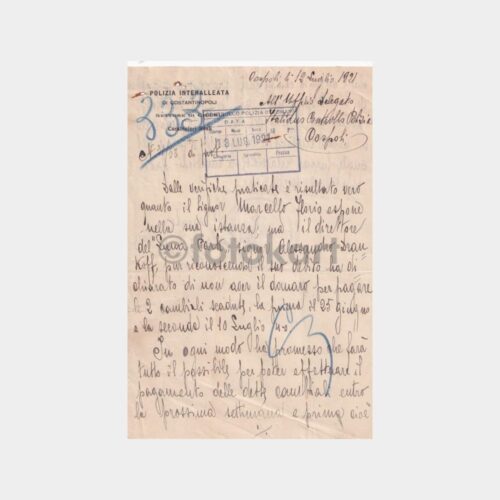 Cospoli li 12 Luglio 1921
POLIZIA INTERALLEATA
DI COSTANTINOPOLI
All' Ufficio Delegato
Italiano Controllo Polizia
Cospoli
323
POLIZIA
DATA
18 LUG. 1921
Dalle verifiche praticate è risultato vero
quanto il signor Marcello Ilorio espone
nella sua istanza, ma il direttore
del Luna Park signor Alessandro
pur riconoscendo il suo debito ha di=
chiarato di non aver il denaro per pagare
le 2 cambiali scadute, la prima il 25 giugno
e la seconda il 10 Luglio
©fotokart
In ogni modo ha promesso che farà
tutto il possibile per poter effettuare il
pagamento delle dette cambiali entro
la prossima settimana e prima cioè